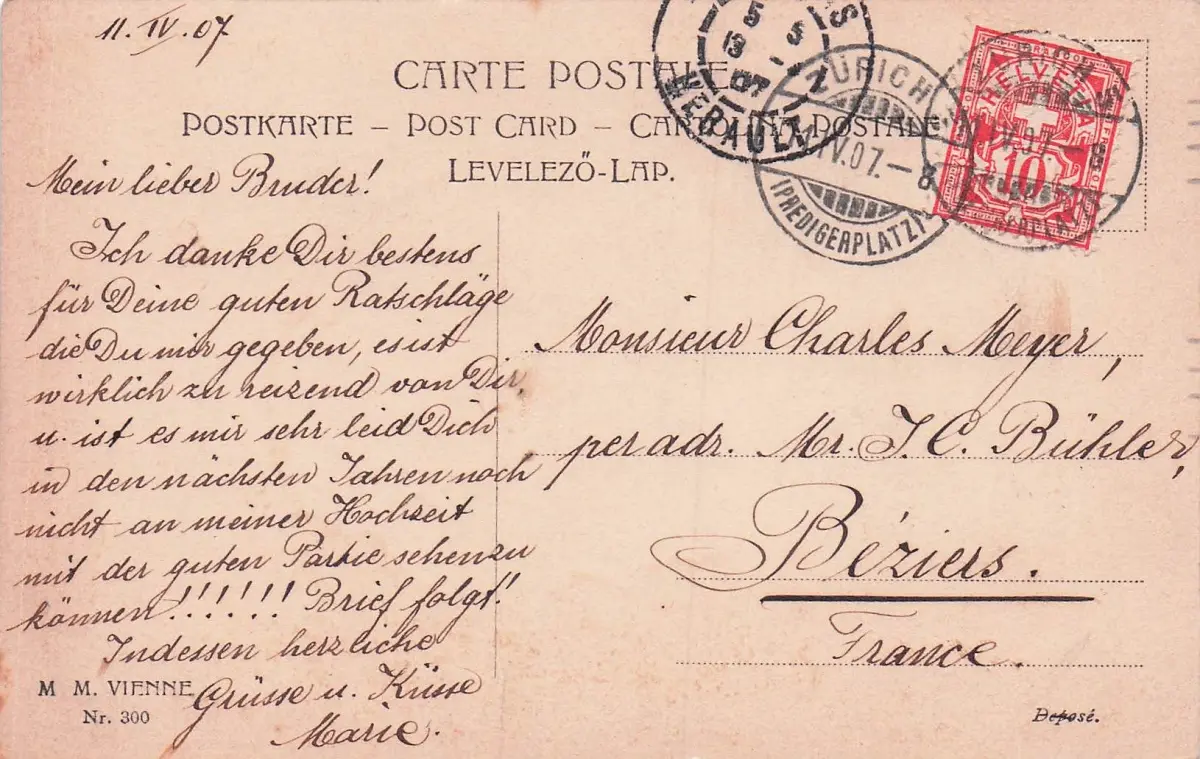 11. IV. 07
CARTE POSTALE
POSTKARTE – POST CARD – CARTOLINA POSTALE
LEVELEZŐ-LAP.
5 5
13
07
HERAULT
ZÜRICH
11.IV.07.–8
(PREDIGERPLATZ)
HELVETIA
10
Mein lieber Bruder!
Ich danke Dir bestens
für Deine guten Ratschläge
die Du mir gegeben, es ist
wirklich zu reizend von Dir,
u. ist es mir sehr leid Dich
in den nächsten Jahren noch
nicht an meiner Hochzeit
mit der guten Partie sehen zu
können!!!!!! Brief folgt!
Indessen herzliche
Grüsse u. Küsse
Marie.
Monsieur Charles Meyer,
per adr. Mr. J. C. Bühler,
Béziers.
France.
M M. VIENNE
Nr. 300
Deposé.